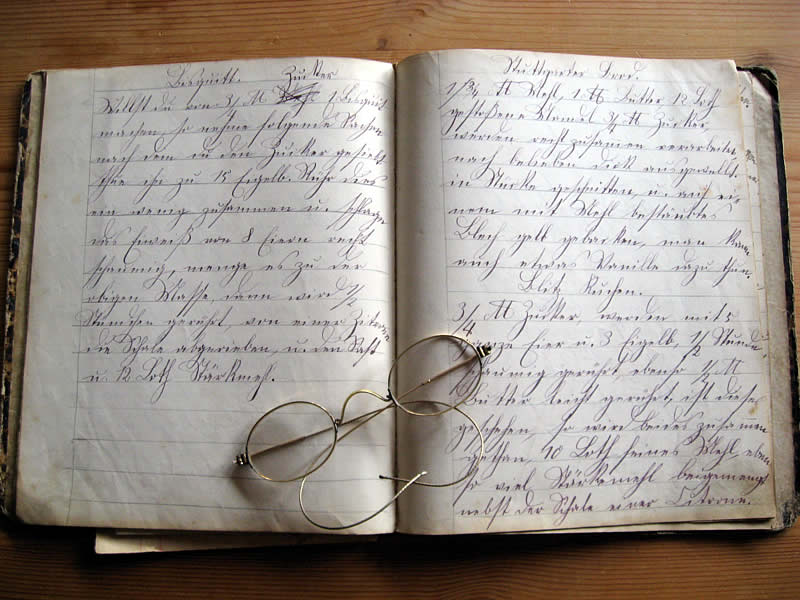 Bisquitt. Zucker
Willst du von 3/4 ℔ 1 Bisquit
machen, so nehme folgende Sachen
nach dem du den Zucker gesiebt
thue ihn zu 15 Eigelb. Rühr dies
ein wenig zusammen u. schlage
das Eiweiß von 8 Eiern recht
schaumig, menge es zu der
obigen Masse, dann wird 1/2
Stündchen gerührt, von einer Zitrone
die Schale abgerieben, u. den Saft
u. 12 Loth Stärkmehl.
Stuttgarter Brod.
1/3/4 ℔ Mehl, 1 ℔ Butter 12 Loth
gestoßene Mandel 3/4 ℔ Zucker,
werden recht zusamen verarbeitet,
nach belieben dick ausgewellt,
in Stücke geschnitten u. auf ei-
nem mit Mehl bestäubtes
Blech gelb gebacken, man kann
auch etwas Vanille dazu thun.
Blitz Kuchen.
3/4 ℔ Zucker, werden mit 5
ganze Eier u. 3 Eigelb, 1/2 Stunde
schaumig gerührt, ebenso 1/2 ℔
Butter leicht gerührt, ist dieses
geschehen, so wird beides zusammen
gethan, 10 Loth feines Mehl eben
so viel Stärkemehl beigemengt
nebst der Schale einer Citrone.